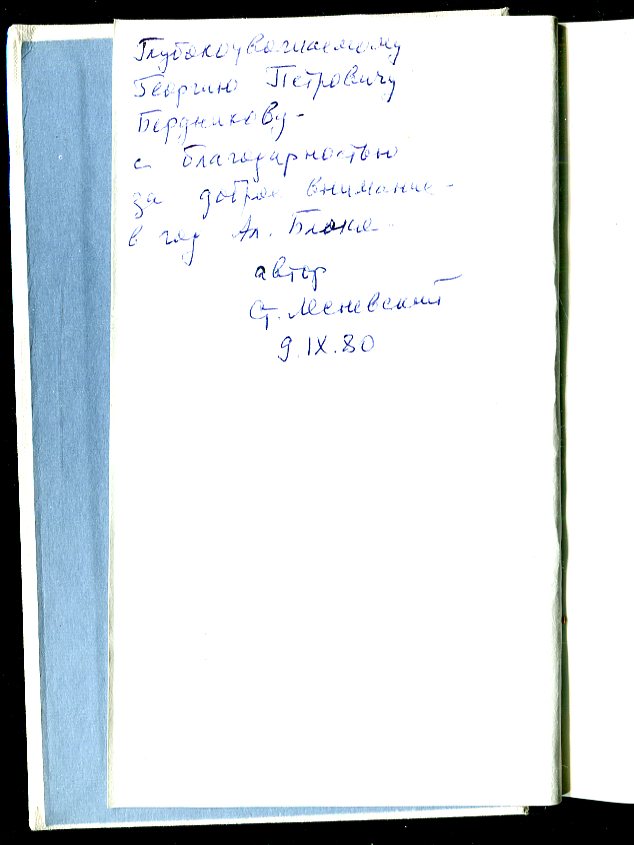 Глубокоуважаемому
Георгию Петровичу
Бердникову -
с благодарностью
за доброе внимание -
в год Ал. Блока.
автор
Ст. Лесневский
9.IX.80